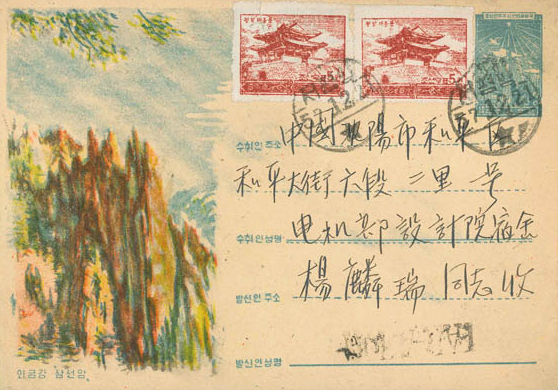 수취인 주소
中国沈陽市和平区
和平大街六段二里 号
수취인성명
电机部設計院宿舍
발신인 주소
楊麟瑞 同志收
발신인성명
외금강 삼선암